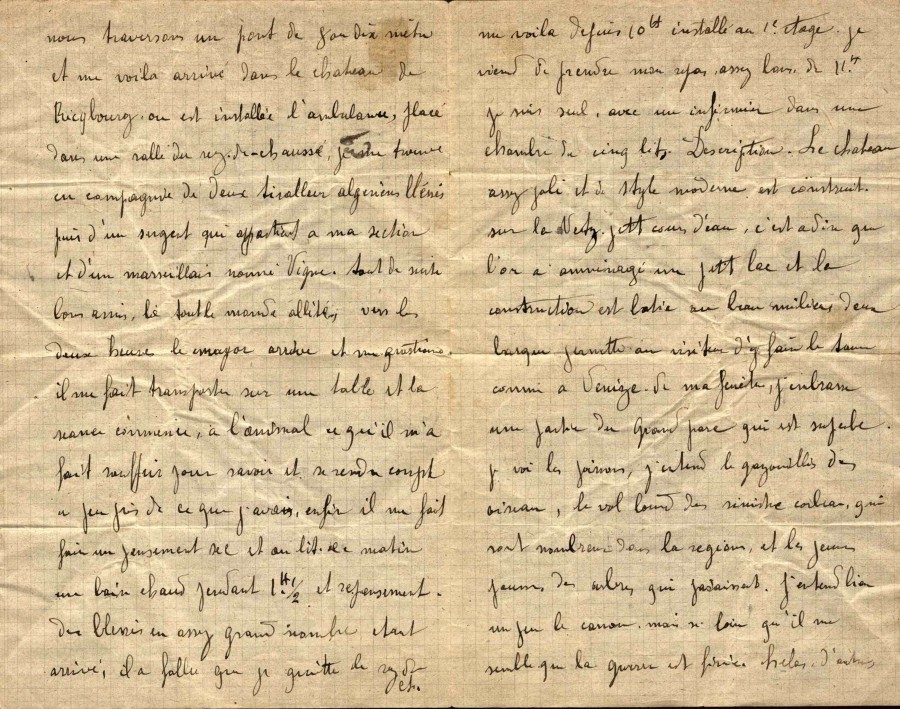 nous traversons un pont de
et me voila arrivé dans le chateau de
Ricqbourg. ou est installée l'ambulance, placé
dans une salle du rez-de-chaussé, je me trouve
en compagnie de deux tiralleur algeriens bléssés
puis d'un sergent qui appartient a ma section
et d'un marseillais nommé Vigne. tout de suite
tout le monde allités, vers les
deux heure le mayor arrive et me questionne.
il me fait transporter sur une table et la
seance commence, a l'animal ce qu'il m'a
fait souffrir pour savoir et se rendre compt
a peu pris de ce que j'avais, enfin il me fait
fair un pensement sec et au lit. ce matin
un bain chaud pendant 1H1/2 et repensement.
Des blessés en assez grand nombre etant
arrivé, il a fallu que je quitte le rez d-
ch.
me voila depuis 10H installé au 1e etage. je
viend de prendre mon repas, assez bon, de 11H.
je suis seul, avec un infirmier dans une
chambre de cinq lits. Description. Le chateau
assez joli et de style moderne est construit.
sur la Metz. petit cours d'eau, c'est a dire que
l'on a amménagé un petit lac et la
construction est batie au beau millieu deux
barques permette au visiteur d'y fair le tour
comme a Venize. de ma fenètre, j'enbrasse
une partie du Grand parc qui est superbe.
je voi les poissons, j'entend le gazouillis des
oiseau, le vol lourd des sinistre corbeau, qui
sont nombreux dans la regions, et les jeunes
des arbres qui. j'entend bien
un peu le canon. mais si loin qu'il me
semble que la guerre est finie. helas. d'autres